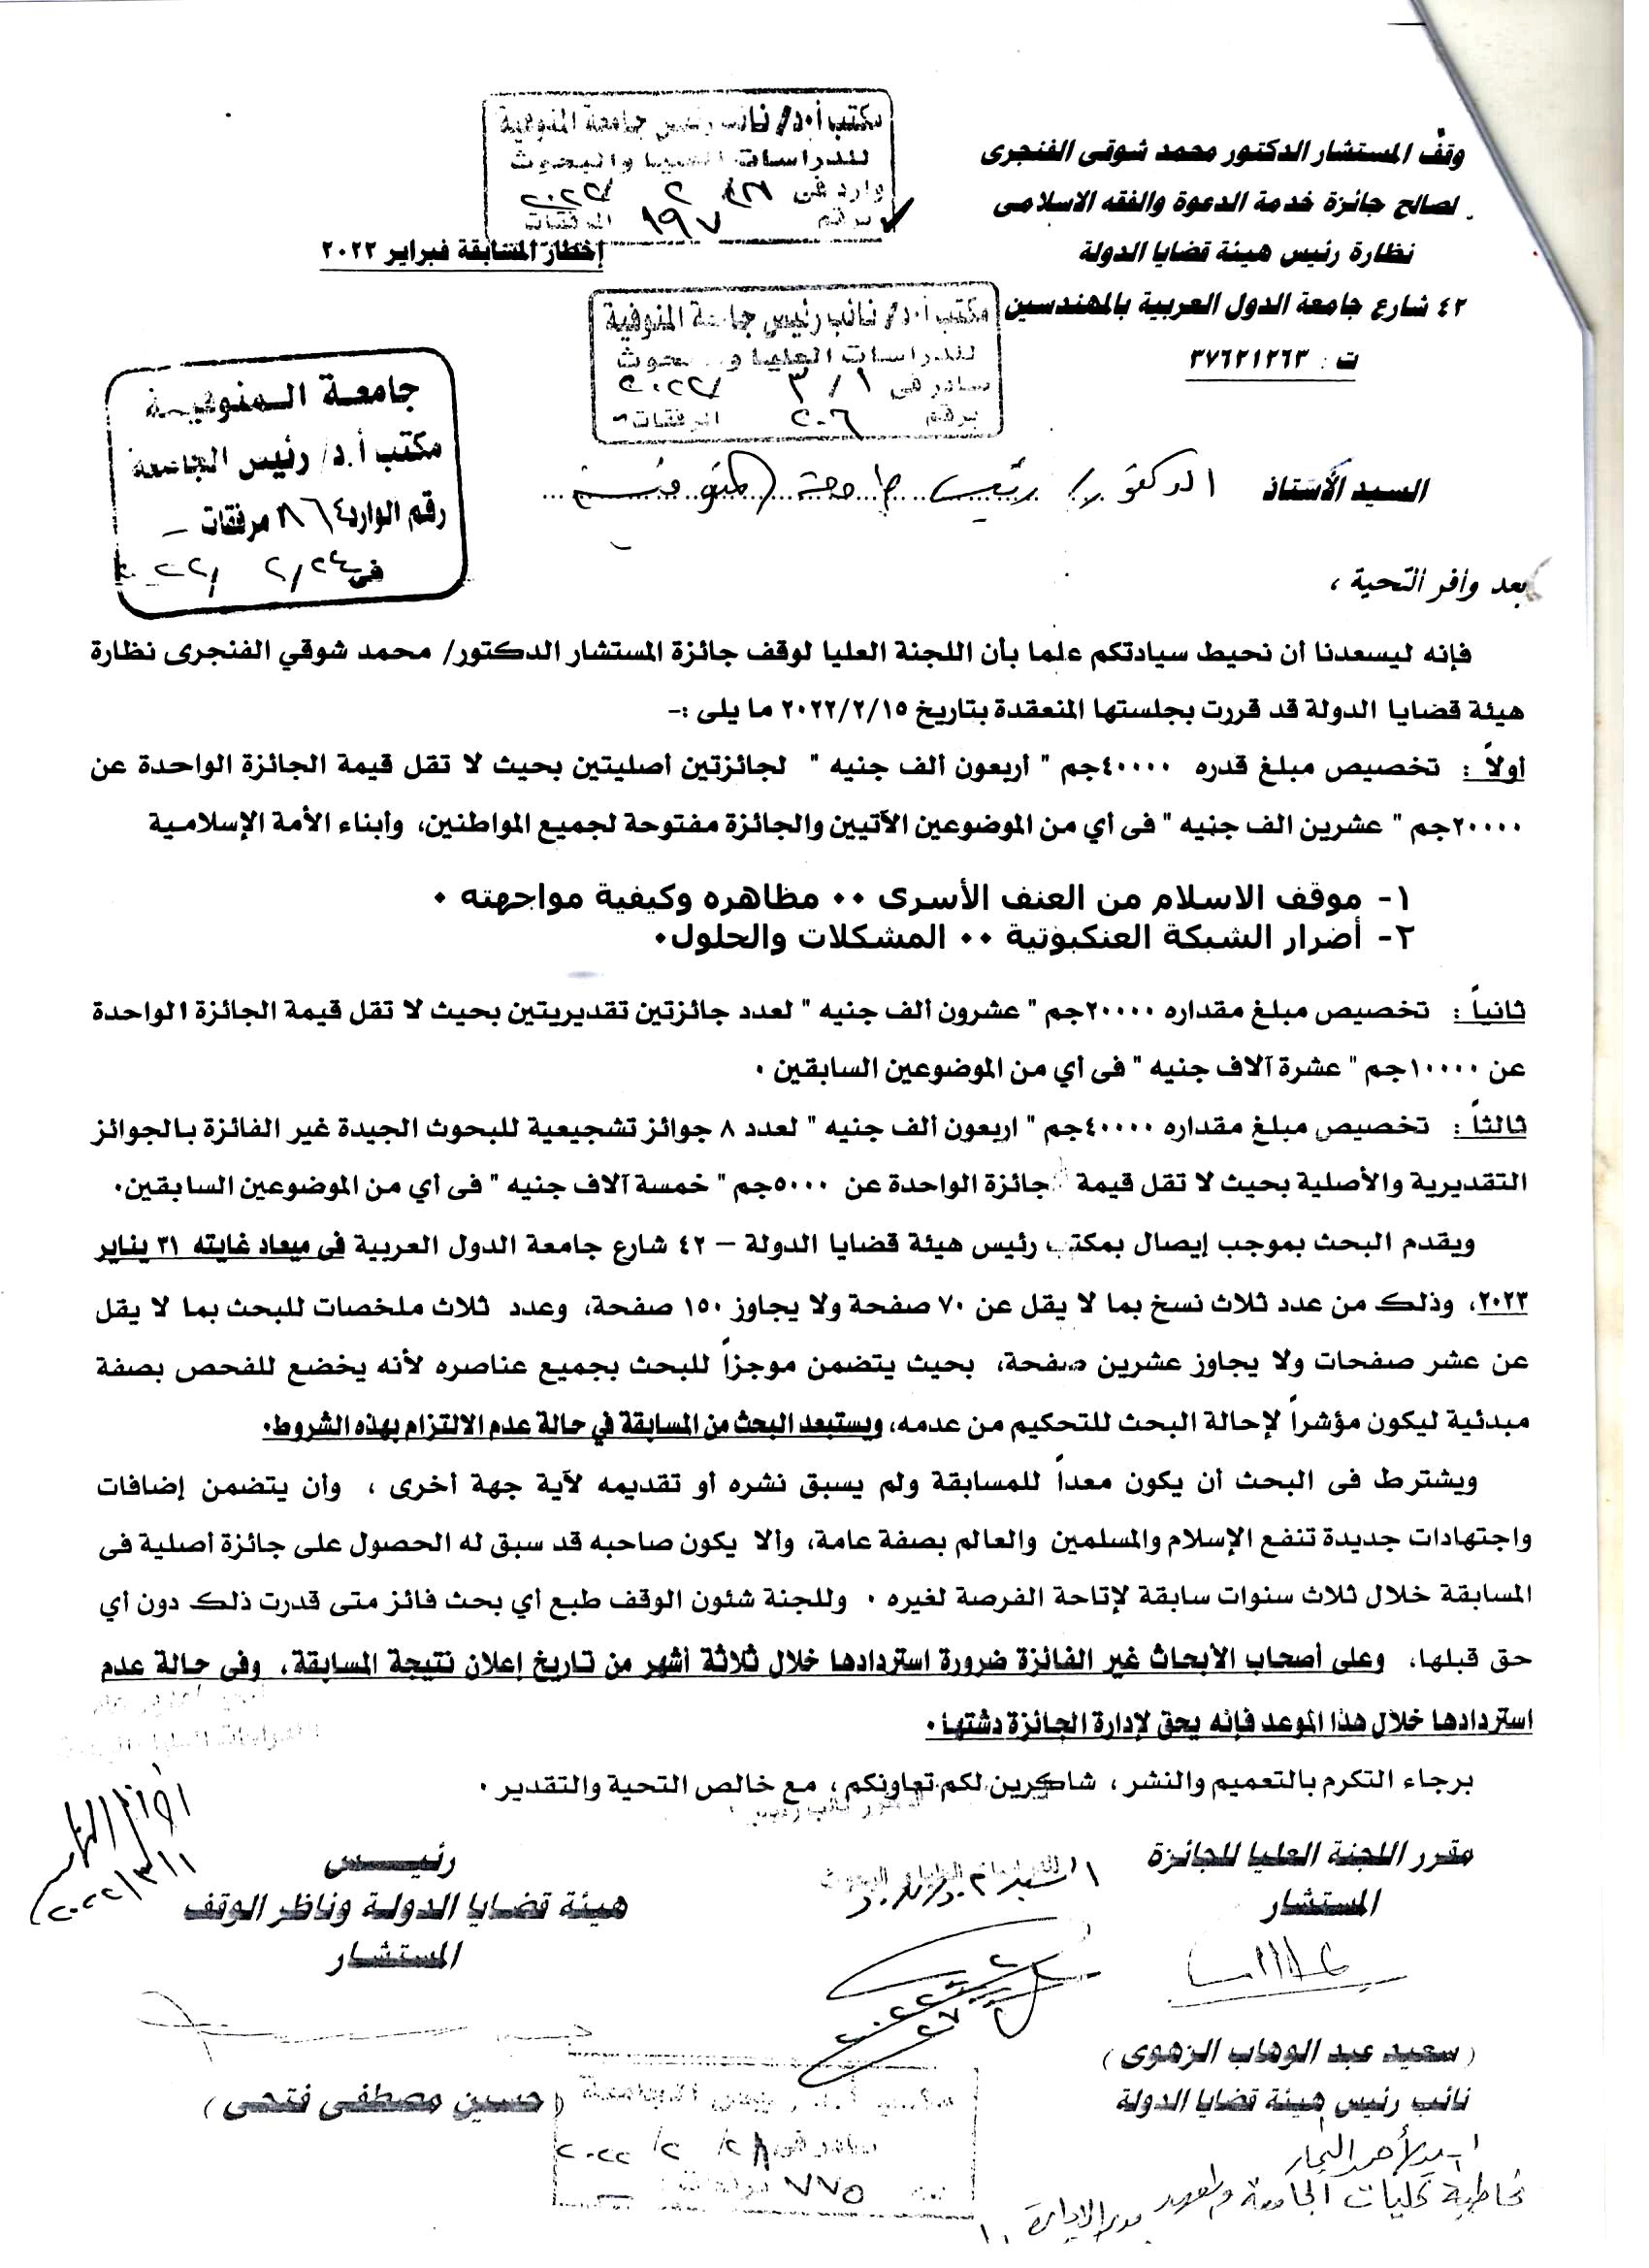 وقف المستشار الدكتور محمد شوقى الفنجرى
لصالح جائزة خدمة الدعوة والفقه الاسلامى
نظارة رئيس هيئة قضايا الدولة
٤٢ شارع جامعة الدول العربية بالمهندسين
ت : ٣٧٦٢١٢٦٣
مكتب أ.د/ نائب رئيس جامعة المنوفية
للدراسات العليا والبحوث
وارد فى ٢ / ٢٠٢٢
برقم ١٩٧ المرفقات
إخطار المسابقة فبراير ٢٠٢٢
مكتب أ.د/ نائب رئيس جامعة المنوفية
للدراسات العليا والبحوث
صادر فى ١ / ٣ / ٢٠٢٢
برقم ٢٠٦ المرفقات
جامعة المنوفية
مكتب أ.د/ رئيس الجامعة
رقم الوارد مرفقات -
فى ٢/٢٤ / ٢٠٢٢
السيد الأستاذ الدكتور / رئيس جامعة المنوفية
بعد وافر التحية ،
فإنه ليسعدنا أن نحيط سيادتكم علما بأن اللجنة العليا لوقف جائزة المستشار الدكتور/ محمد شوقي الفنجرى نظارة
هيئة قضايا الدولة قد قررت بجلستها المنعقدة بتاريخ ٢٠٢٢/٢/١٥ ما يلى :-
أولاً : تخصيص مبلغ قدره ٤٠٠٠٠جم " أربعون ألف جنيه " لجائزتين أصليتين بحيث لا تقل قيمة الجائزة الواحدة عن
٢٠٠٠٠جم " عشرين الف جنيه " فى أي من الموضوعين الآتيين والجائزة مفتوحة لجميع المواطنين، وأبناء الأمة الإسلامية
١- موقف الاسلام من العنف الأسرى ٠٠ مظاهره وكيفية مواجهته ٠
٢- أضرار الشبكة العنكبوتية ٠٠ المشكلات والحلول٠
ثانياً : تخصيص مبلغ مقداره ٢٠٠٠٠جم " عشرون ألف جنيه " لعدد جائزتين تقديريتين بحيث لا تقل قيمة الجائزة الواحدة
عن ١٠٠٠٠جم " عشرة آلاف جنيه " فى أي من الموضوعين السابقين ٠
ثالثاً : تخصيص مبلغ مقداره ٤٠٠٠٠جم " اربعون ألف جنيه " لعدد ٨ جوائز تشجيعية للبحوث الجيدة غير الفائزة بالجوائز
التقديرية والأصلية بحيث لا تقل قيمة الجائزة الواحدة عن ٥٠٠٠جم " خمسة آلاف جنيه " فى أي من الموضوعين السابقين٠
ويقدم البحث بموجب إيصال بمكتب رئيس هيئة قضايا الدولة – ٤٢ شارع جامعة الدول العربية فى ميعاد غايته ٣١ يناير
٢٠٢٣، وذلك من عدد ثلاث نسخ بما لا يقل عن ٧٠ صفحة ولا يجاوز ١٥٠ صفحة، وعدد ثلاث ملخصات للبحث بما لا يقل
عن عشر صفحات ولا يجاوز عشرين صفحة، بحيث يتضمن موجزاً للبحث بجميع عناصره لأنه يخضع للفحص بصفة
مبدئية ليكون مؤشراً لإحالة البحث للتحكيم من عدمه، ويستبعد البحث من المسابقة في حالة عدم الالتزام بهذه الشروط٠
ويشترط فى البحث أن يكون معداً للمسابقة ولم يسبق نشره أو تقديمه لآية جهة أخرى ، وأن يتضمن إضافات
واجتهادات جديدة تنفع الإسلام والمسلمين والعالم بصفة عامة، وألا يكون صاحبه قد سبق له الحصول على جائزة أصلية فى
المسابقة خلال ثلاث سنوات سابقة لإتاحة الفرصة لغيره ٠ وللجنة شئون الوقف طبع أي بحث فائز متى قدرت ذلك دون أي
حق قبلها، وعلى أصحاب الأبحاث غير الفائزة ضرورة استردادها خلال ثلاثة أشهر من تاريخ إعلان نتيجة المسابقة، وفى حالة عدم
استردادها خلال هذا الموعد فإنه يحق لإدارة الجائزة دشتها٠
برجاء التكرم بالتعميم والنشر ، شاكرين لكم تعاونكم ، مع خالص التحية والتقدير ٠
مقرر اللجنة العليا للجائزة
المستشار
(سعيد عبد الوهاب الزهوى)
نائب رئيس هيئة قضايا الدولة
رئيس
هيئة قضايا الدولة وناظر الوقف
المستشار
(حسين مصطفى فتحى)
٢٠٢٢/٣/١
مكتب أ.د/ رئيس الجامعة
صادر فى ٢٨ / ٢ / ٢٠٢٢
٧٧٥
مخاطبة كليات الجامعة والمعهد
مدير الإدارة